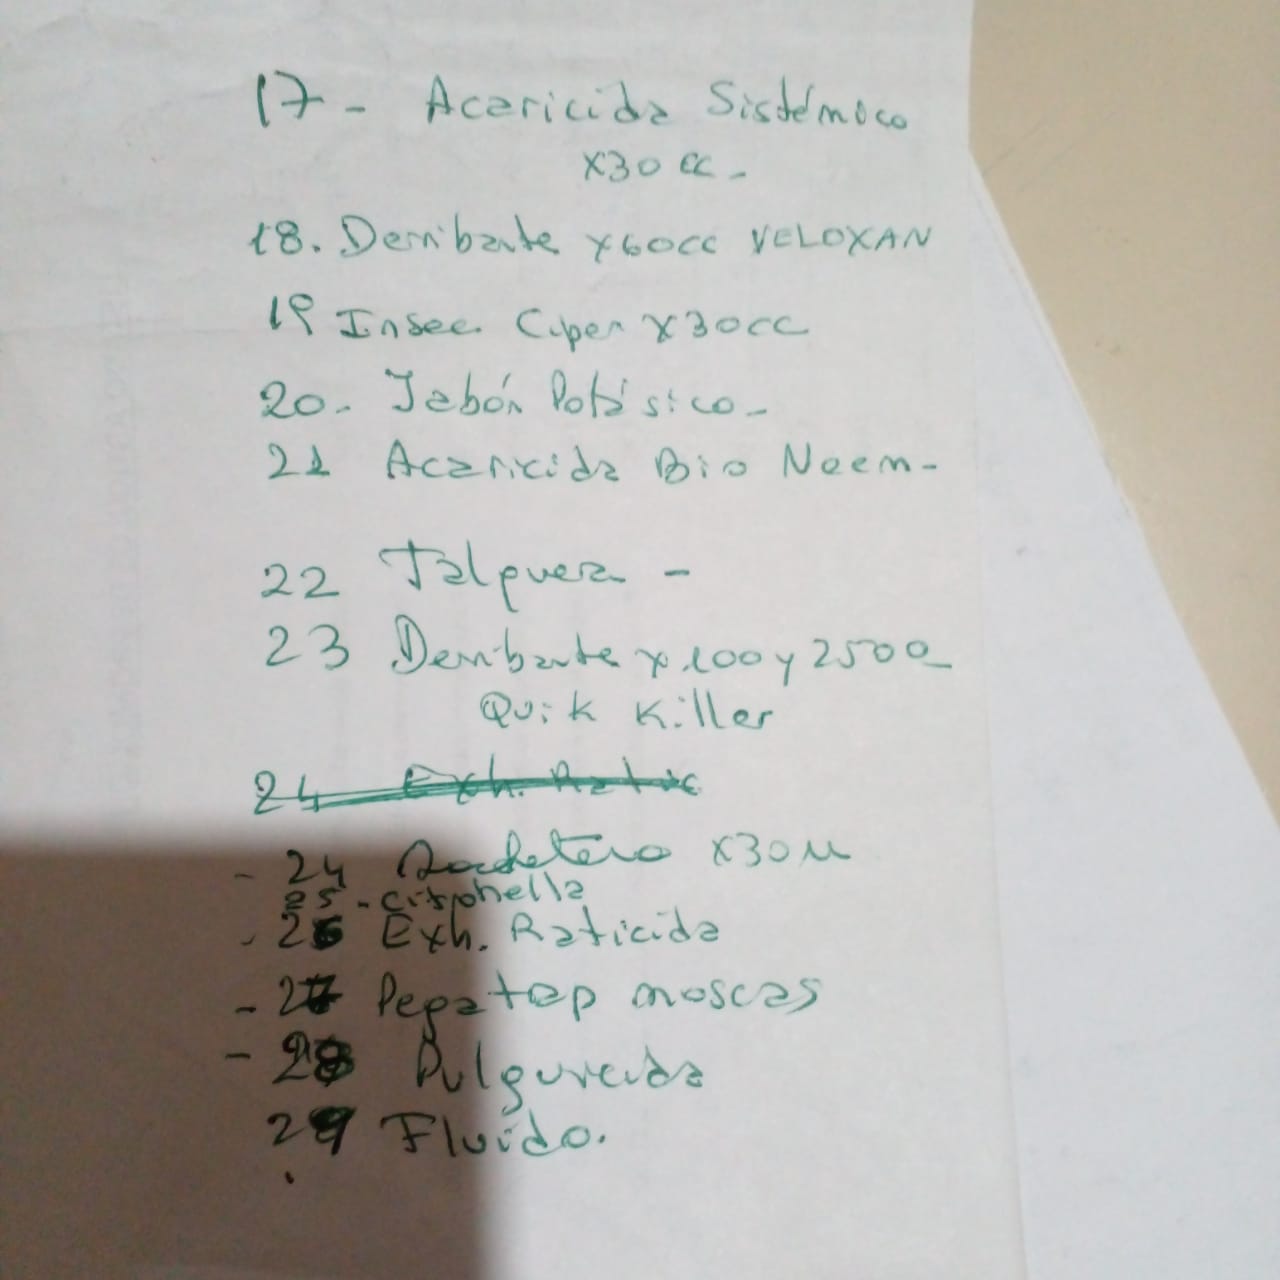 17- Acaricida Sistémico
x30 cc-
18. Derribante x60cc VELOXAN
19 Insec. Ciper x30cc
20- Jabón Potásico-
21 Acaricida Bio Neem-
22 Talquera -
23 Derribante x 100 y 250
Quik Killer
24 Exh.
- 24 x30
25 - citronella
- 26 Exh. Raticida
- 27 Pegatap moscas
- 28
29 Fluido.